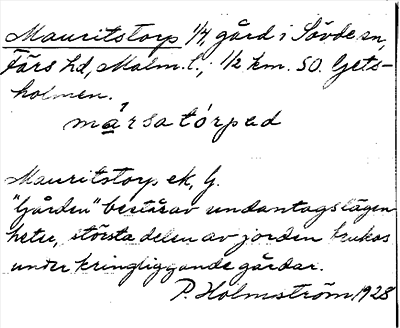 Mauritstorp 1/4, gård i Sövde sn,
Färs hd, Malm. l., 1/2 km. SO. Gets-
holmen.
må'rsatórped
Mauritstorp ek, G.
"Gården" består av undantagslägen
heter, största delen av jorden brukas
under kringliggande gårdar.
P. Holmström, 1928